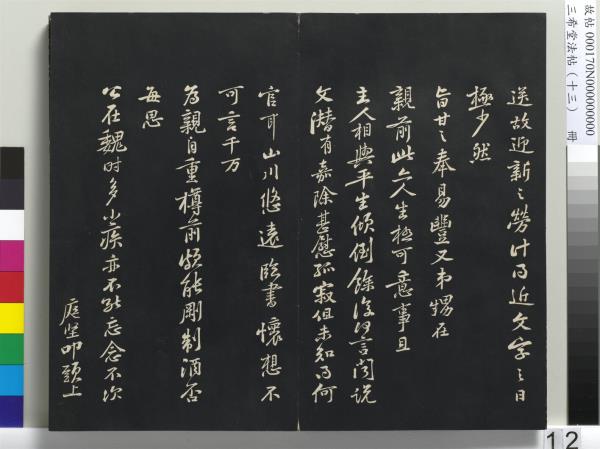 送故迎新之勞計得近文字之日
極少然
旨甘之奉易豐又弟甥在
親前此亦人生極可意事且
主人相與平生傾倒餘復何言閑說
文潛有嘉除甚慰孤寂但未知得何
官耳山川悠遠臨書懷想不
可言千万
為親自重樽前頗能剛制酒否
每思
公在魏時多小疾亦不能忘念不次
庭堅叩頭上
故帖 000170N000000000
三希堂法帖(十三) 冊
12